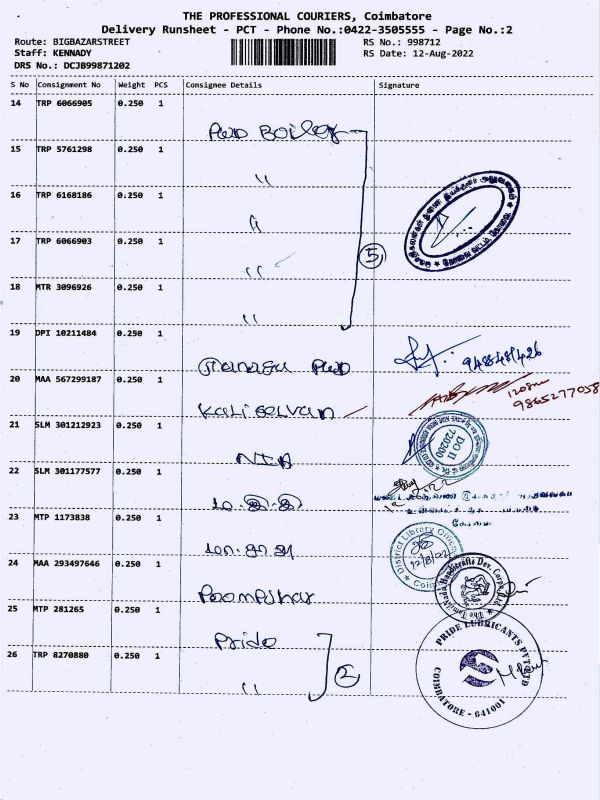 THE PROFESSIONAL COURIERS, Coimbatore
Delivery Runsheet - PCT - Phone No.:0422-3505555 - Page No.:2
Route: BIGBAZARSTREET
Staff: KENNADY
DRS No.: DCJB99871202
RS No.: 998712
RS Date: 12-Aug-2022
S No Consignment No Weight PCS Consignee Details Signature
14 TRP 6066905 0.250 1
15 TRP 5761298 0.250 1
"
16 TRP 6168186 0.250 1
"
17 TRP 6066903 0.250 1
"
5
18 MTR 3096926 0.250 1
"
19 DPI 10211484 0.250 1
20 MAA 567299187 0.250 1
Kaliselvan
9865277058
21 SLM 301212923 0.250 1
NIA
DO II
720200
22 SLM 301177577 0.250 1
23 MTP 1173838 0.250 1
District Library Office
12/8/22
24 MAA 293497646 0.250 1
Poompuhar
The Tamilnadu Handicrafts Dev. Corpn. Ltd
25 MTP 281265 0.250 1
Pride
2
26 TRP 8270880 0.250 1
"
PRIDE LUBRICANTS PVT LTD
COIMBATORE - 641001